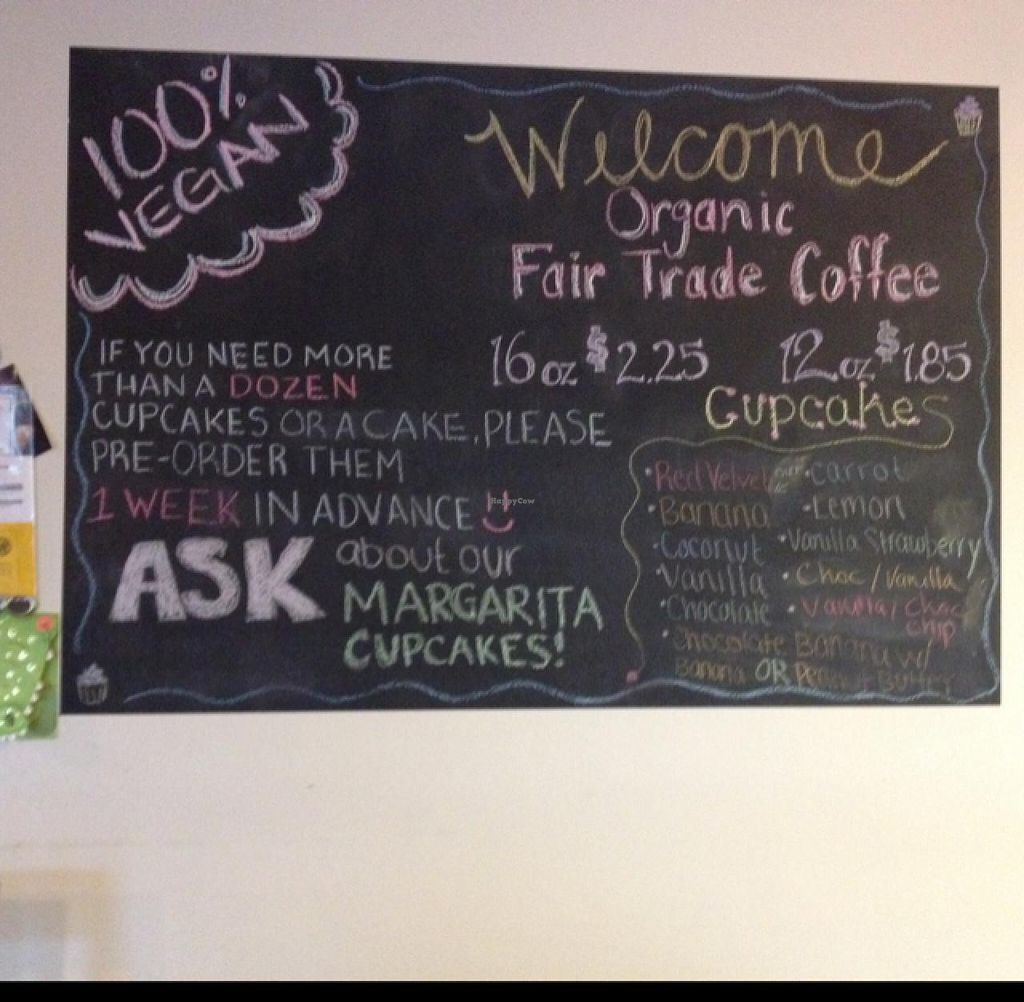 100%
VEGAN
Welcome
Organic
Fair Trade Coffee
16 oz $2.25 12 oz $1.85
IF YOU NEED MORE
THAN A DOZEN
CUPCAKES OR A CAKE, PLEASE
PRE-ORDER THEM
1 WEEK IN ADVANCE
HappyCow
ASK about our
MARGARITA
CUPCAKES!
Cupcakes
• Red Velvet
• Banana
• Coconut
• Vanilla
• Chocolate
• Carrot
• Lemon
• Vanilla Strawberry
• Choc / Vanilla
• Vanilla / Choc
Chip
• Chocolate Banana w/
Banana OR Peanut Butter